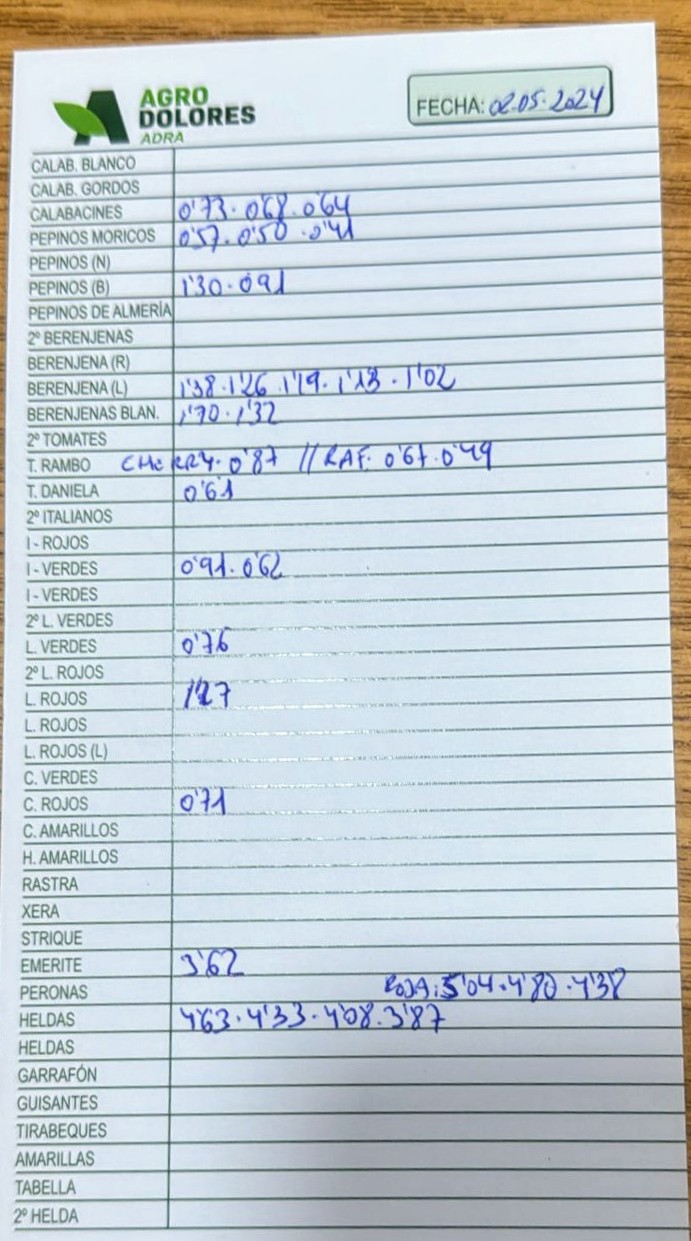 AGRO
DOLORES
ADRA
FECHA: 02.05.2024
CALAB. BLANCO
CALAB. GORDOS
CALABACINES 0'73.0'68.0'64
PEPINOS MORICOS 0'57.0'50.0'41
PEPINOS (N)
PEPINOS (B) 1'30.0'91
PEPINOS DE ALMERÍA
2º BERENJENAS
BERENJENA (R)
BERENJENA (L) 1'38.1'26.1'19.1'13.1'02
BERENJENAS BLAN. 1'70.1'32
2º TOMATES
T. RAMBO CHERRY. 0'87 // RAF. 0'67.0'49
T. DANIELA 0'61
2º ITALIANOS
I - ROJOS
I - VERDES 0'91.0'62
I - VERDES
2º L. VERDES
L. VERDES 0'76
2º L. ROJOS
L. ROJOS 1'27
L. ROJOS
L. ROJOS (L)
C. VERDES
C. ROJOS 0'71
C. AMARILLOS
H. AMARILLOS
RASTRA
XERA
STRIQUE
EMERITE 3'62
PERONAS ROJA: 5'04.4'80.4'38
HELDAS 4'63.4'33.4'08.3'87
HELDAS
GARRAFÓN
GUISANTES
TIRABEQUES
AMARILLAS
TABELLA
2º HELDA